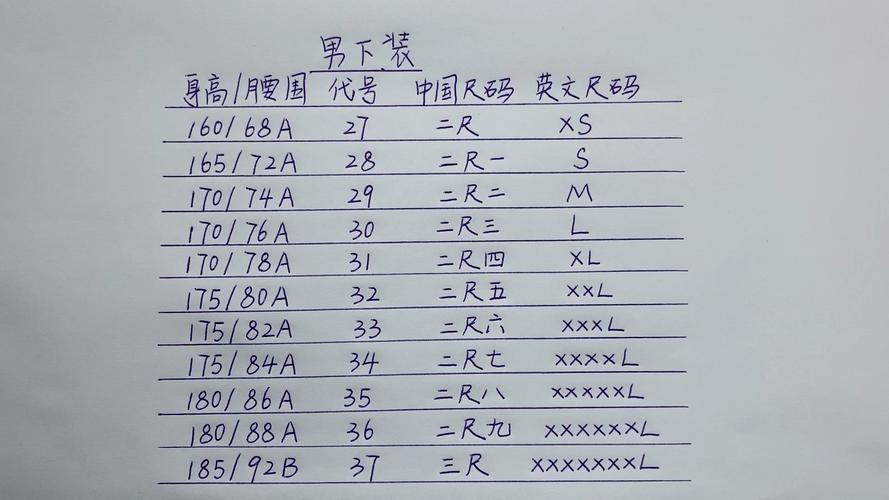 男下装
身高/腰围 代号 中国尺码 英文尺码
160/68A 27 二尺 XS
165/72A 28 二尺一 S
170/74A 29 二尺二 M
170/76A 30 二尺三 L
170/78A 31 二尺四 XL
175/80A 32 二尺五 XXL
175/82A 33 二尺六 XXXL
175/84A 34 二尺七 XXXXL
180/86A 35 二尺八 XXXXXL
180/88A 36 二尺九 XXXXXXL
185/92B 37 三尺 XXXXXXXL